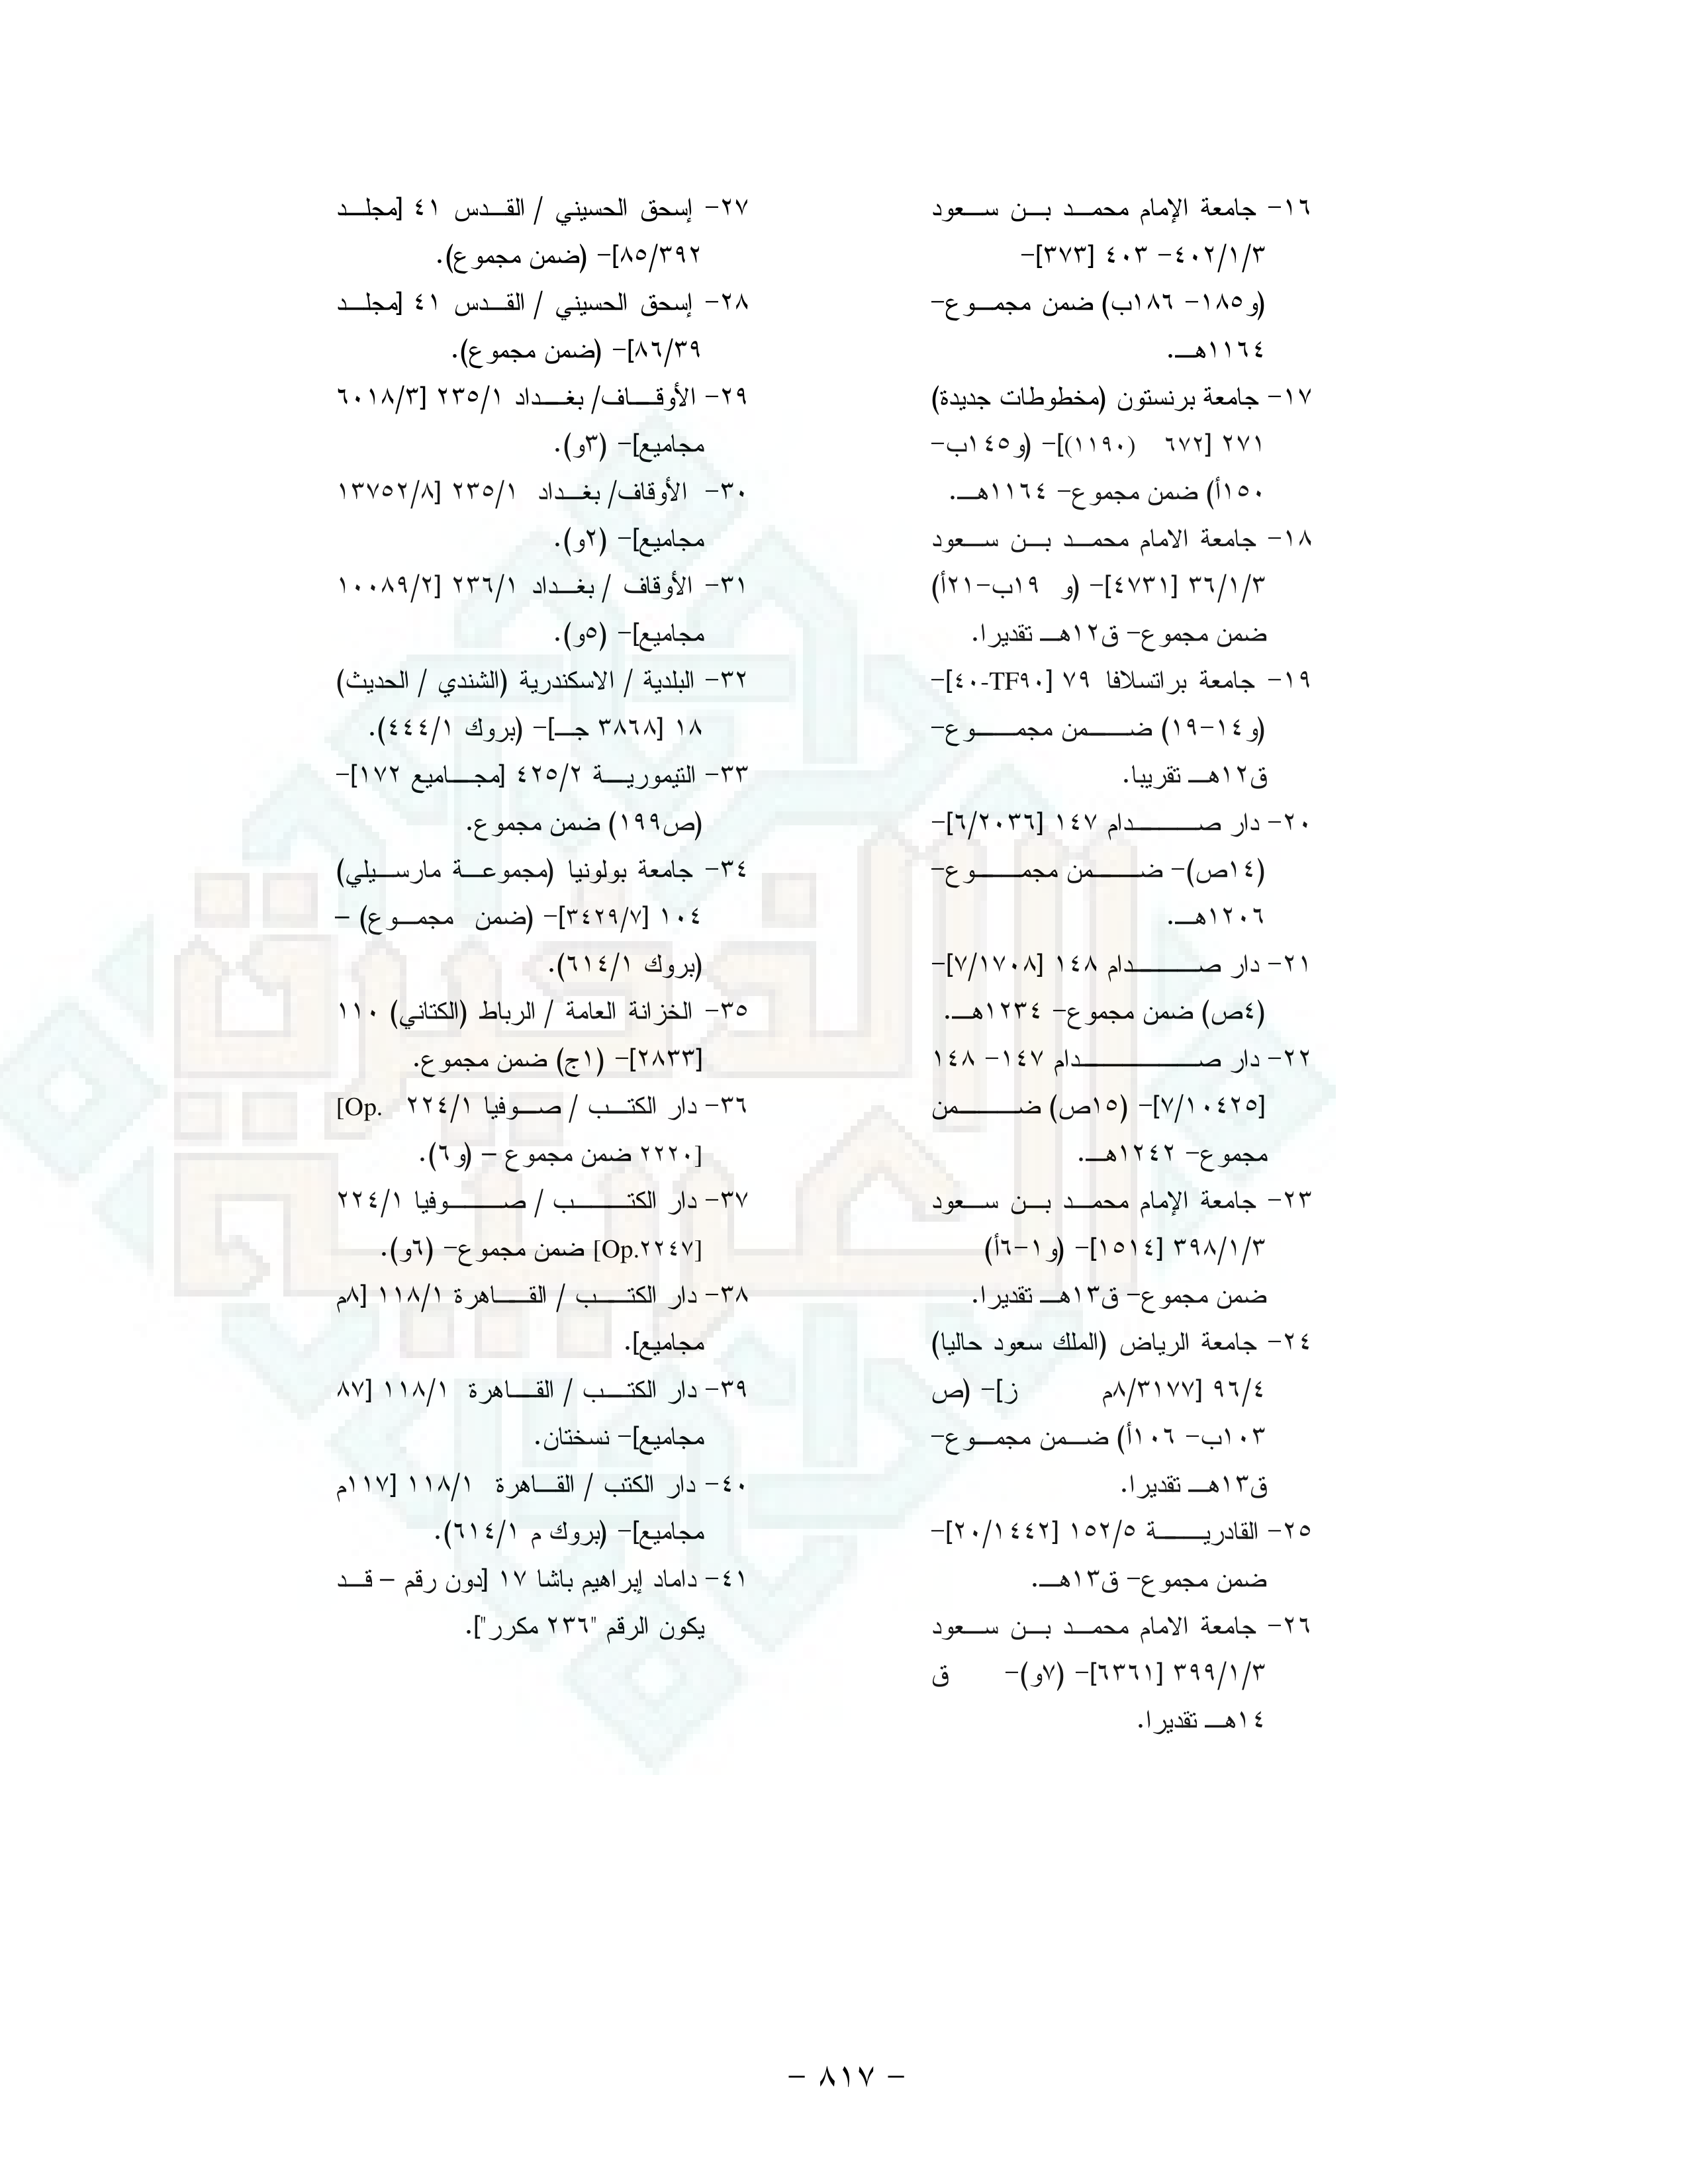 ١٦- جامعة الإمام محمد بن سعود
٤٠٢/١/٣- ٤٠٣ [٣٧٣]-
(و١٨٥- ١٨٦ب) ضمن مجموع-
١١٦٤هـ.
١٧- جامعة برنستون (مخطوطات جديدة)
٢٧١ [٦٧٢ (١١٩٠)]- (و١٤٥ب-
١٥٠أ) ضمن مجموع- ١١٦٤هـ.
١٨- جامعة الامام محمد بن سعود
٣٦/١/٣ [٤٧٣١]- (و ١٩ب-٢١أ)
ضمن مجموع- ق١٢هـ تقديرا.
١٩- جامعة براتسلافا ٧٩ [٤٠-TF٩٠]-
(و١٤-١٩) ضمن مجموع-
ق١٢هـ تقريبا.
٢٠- دار صدام ١٤٧ [٦/٢٠٣٦]-
(١٤ص)- ضمن مجموع-
١٢٠٦هـ.
٢١- دار صدام ١٤٨ [٧/١٧٠٨]-
(٤ص) ضمن مجموع- ١٢٣٤هـ.
٢٢- دار صدام ١٤٧- ١٤٨
[٧/١٠٤٢٥]- (١٥ص) ضمن
مجموع- ١٢٤٢هـ.
٢٣- جامعة الإمام محمد بن سعود
٣٩٨/١/٣ [١٥١٤]- (و١-٦أ)
ضمن مجموع- ق١٣هـ تقديرا.
٢٤- جامعة الرياض (الملك سعود حاليا)
٩٦/٤ [٨/٣١٧٧م ز]- (ص
١٠٣ب- ١٠٦أ) ضمن مجموع-
ق١٣هـ تقديرا.
٢٥- القادرية ١٥٢/٥ [٢٠/١٤٤٢]-
ضمن مجموع- ق١٣هـ.
٢٦- جامعة الامام محمد بن سعود
٣٩٩/١/٣ [٦٣٦١]- (٧و)- ق
١٤هـ تقديرا.
٢٧- إسحق الحسيني / القدس ٤١ [مجلد
٨٥/٣٩٢]- (ضمن مجموع).
٢٨- إسحق الحسيني / القدس ٤١ [مجلد
٨٦/٣٩]- (ضمن مجموع).
٢٩- الأوقاف/ بغداد ٢٣٥/١ [٦٠١٨/٣
مجاميع]- (٣و).
٣٠- الأوقاف/ بغداد ٢٣٥/١ [١٣٧٥٢/٨
مجاميع]- (٢و).
٣١- الأوقاف / بغداد ٢٣٦/١ [١٠٠٨٩/٢
مجاميع]- (٥و).
٣٢- البلدية / الاسكندرية (الشندي / الحديث)
١٨ [٣٨٦٨ جـ]- (بروك ٤٤٤/١).
٣٣- التيمورية ٤٢٥/٢ [مجاميع ١٧٢]-
(ص١٩٩) ضمن مجموع.
٣٤- جامعة بولونيا (مجموعة مارسيلي)
١٠٤ [٣٤٢٩/٧]- (ضمن مجموع) –
(بروك ٦١٤/١).
٣٥- الخزانة العامة / الرباط (الكتاني) ١١٠
[٢٨٣٣]- (١ج) ضمن مجموع.
٣٦- دار الكتب / صوفيا ٢٢٤/١ [Op.
٢٢٢٠] ضمن مجموع – (و٦).
٣٧- دار الكتب / صوفيا ٢٢٤/١
[Op.٢٢٤٧] ضمن مجموع- (٦و).
٣٨- دار الكتب / القاهرة ١١٨/١ [٨م
مجاميع].
٣٩- دار الكتب / القاهرة ١١٨/١ [٨٧
مجاميع]- نسختان.
٤٠- دار الكتب / القاهرة ١١٨/١ [١١٧م
مجاميع]- (بروك م ٦١٤/١).
٤١- داماد إبراهيم باشا ١٧ [دون رقم – قد
يكون الرقم "٢٣٦ مكرر"].
- ٨١٧ -